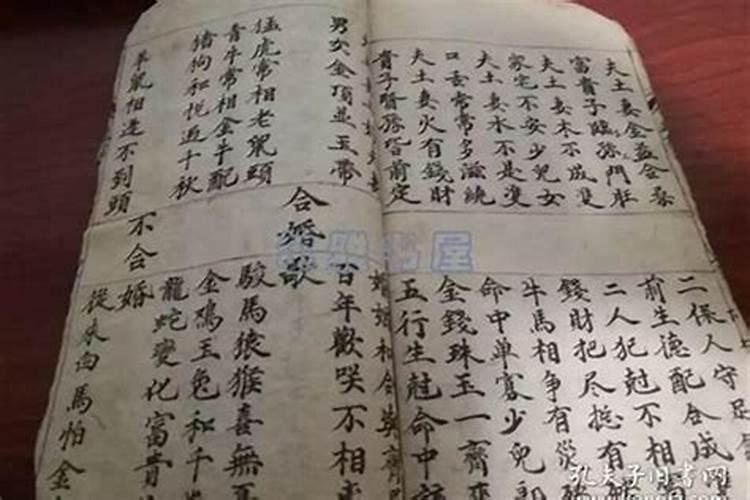 夫土妻金益合
富貴子臨孫門
夫土妻木不成雙
家宅不安少兒女
夫土妻水不是雙
口舌常常多滋繞
夫土妻火有錢財
貴子賢孫皆前定
二保人守足
前生德配合成
二人犯尅不相
錢財把尽挺有
牛馬相争有災
命中单寡少兒郎
金錢珠玉一齊來
五行生尅命中
婚姻和合
男女金頂並玉帶
百年歡咲不相
合婚歌
猛虎常相老鼠頭
青牛常相金牛配
猪狗和悦過千秋
駿馬猿猴喜無
金鸡玉兔和千
龍蛇變化富貴
羊鼠相逢不到頭
不合婚
從来白馬怕金
书屋
孔夫子旧書网